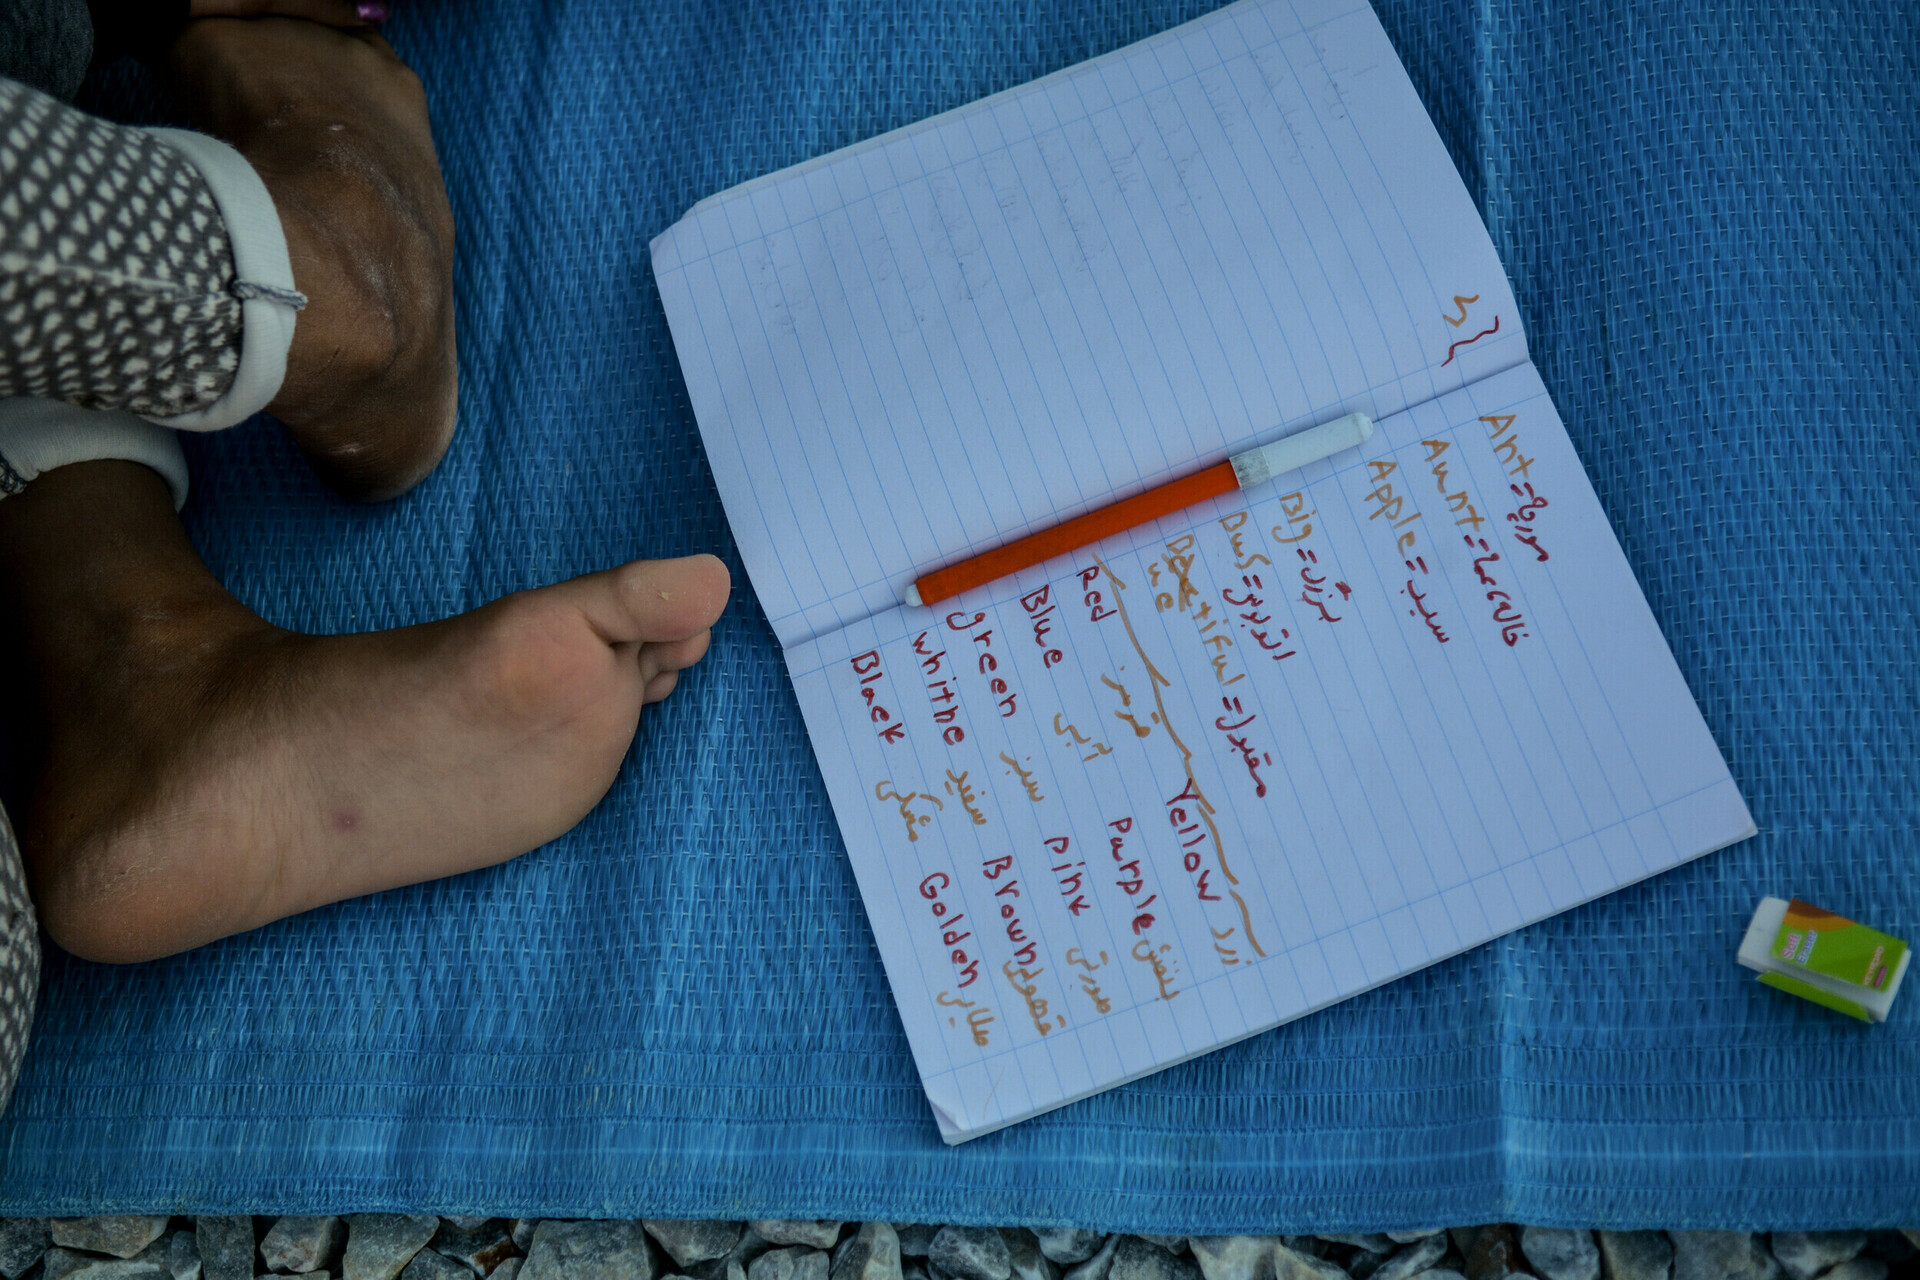 Ant = مورچه
Aunt = خاله، عمه
Apple = سیب
Big = بزرگ
Bus = اتوبوس
Beautiful = مقبول
ue
Red قرمز Yellow زرد
Blue آبی Purple بنفش
green سبز Pink صورتی
whithe سفید Brown قهوه‌ای
Black مشکی Golden طلایی
Soft
Eraser